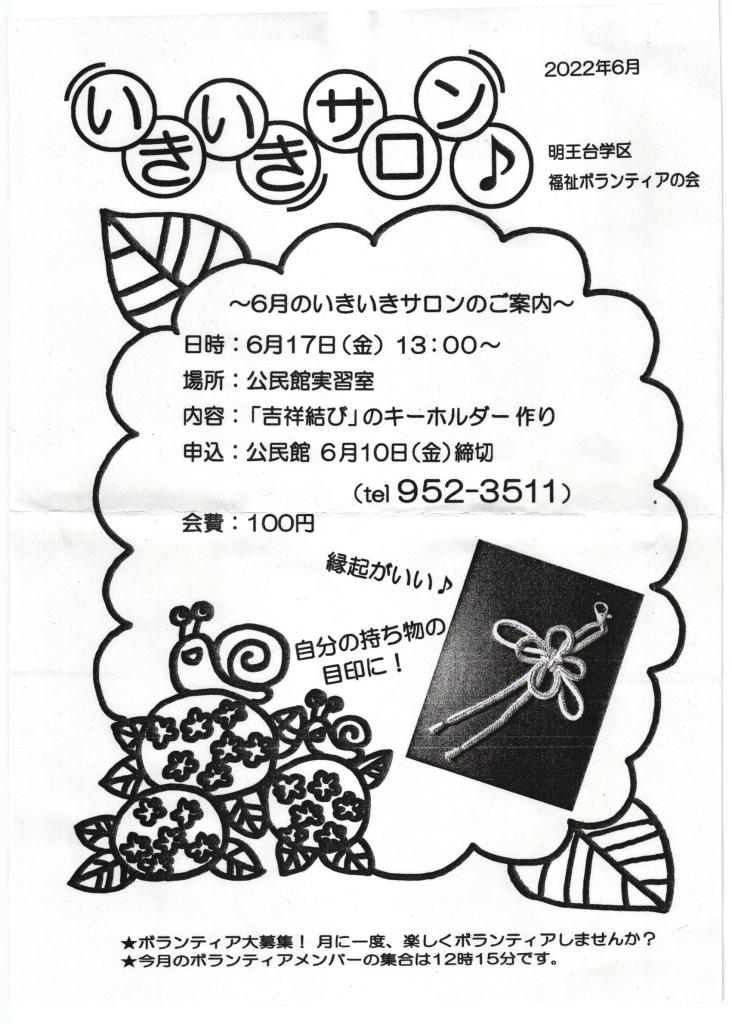 いきいきサロン♪
2022年6月
明王台学区
福祉ボランティアの会
～6月のいきいきサロンのご案内～
日時：6月17日(金) 13：00～
場所：公民館実習室
内容：「吉祥結び」のキーホルダー作り
申込：公民館 6月10日(金)締切
(tel 952-3511)
会費：100円
縁起がいい♪
自分の持ち物の
目印に！
★ボランティア大募集！ 月に一度、楽しくボランティアしませんか？
★今月のボランティアメンバーの集合は12時15分です。